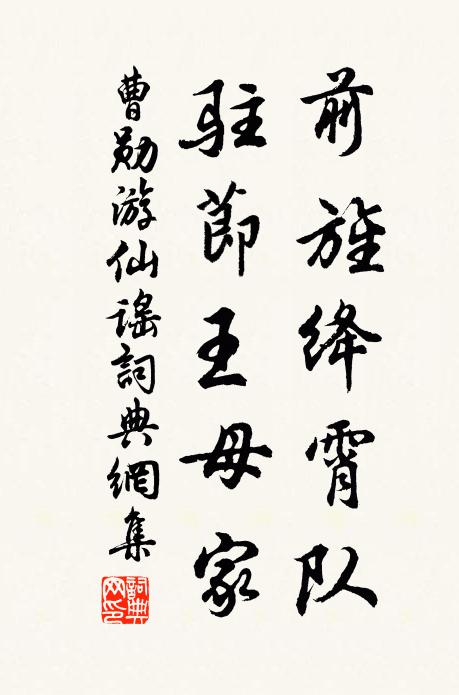 前旌绛霄队
驻莭王母家
曹勋游仙谣詞典網集
詞典网印